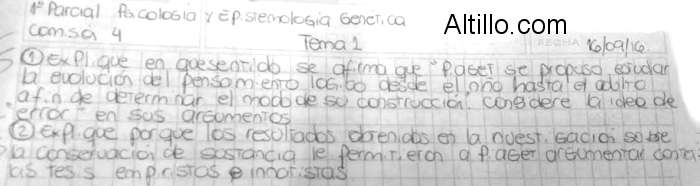 1º Parcial Psicología y Epistemología Genética
Altillo.com
Comisión 4
Tema 1
FECHA 16/09/16
① Explique en que sentido se afirma que "Piaget se propuso estudiar
la evolución del pensamiento lógico desde el niño hasta el adulto
a fin de determinar el modo de su construcción. Considere la idea de
"error" en sus argumentos
② Explique porque los resultados obtenidos en la investigación sobre
la conservación de sustancia le permitieron a Piaget argumentar contra
las tesis empiristas e innatistas